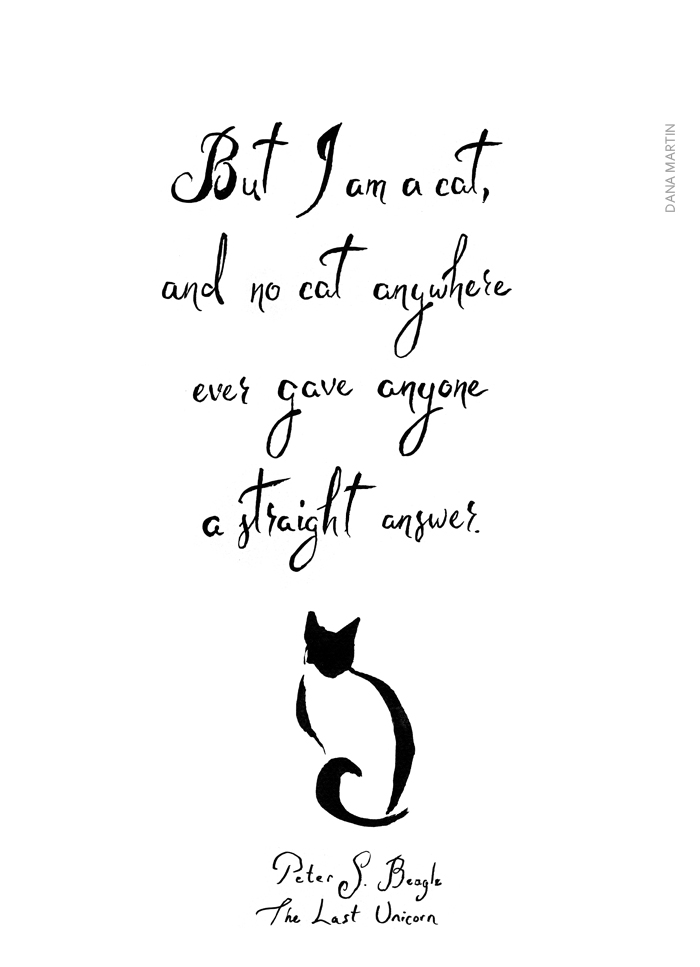 But I am a cat,
and no cat anywhere
ever gave anyone
a straight answer.
Peter S. Beagle
The Last Unicorn
DANA MARTIN